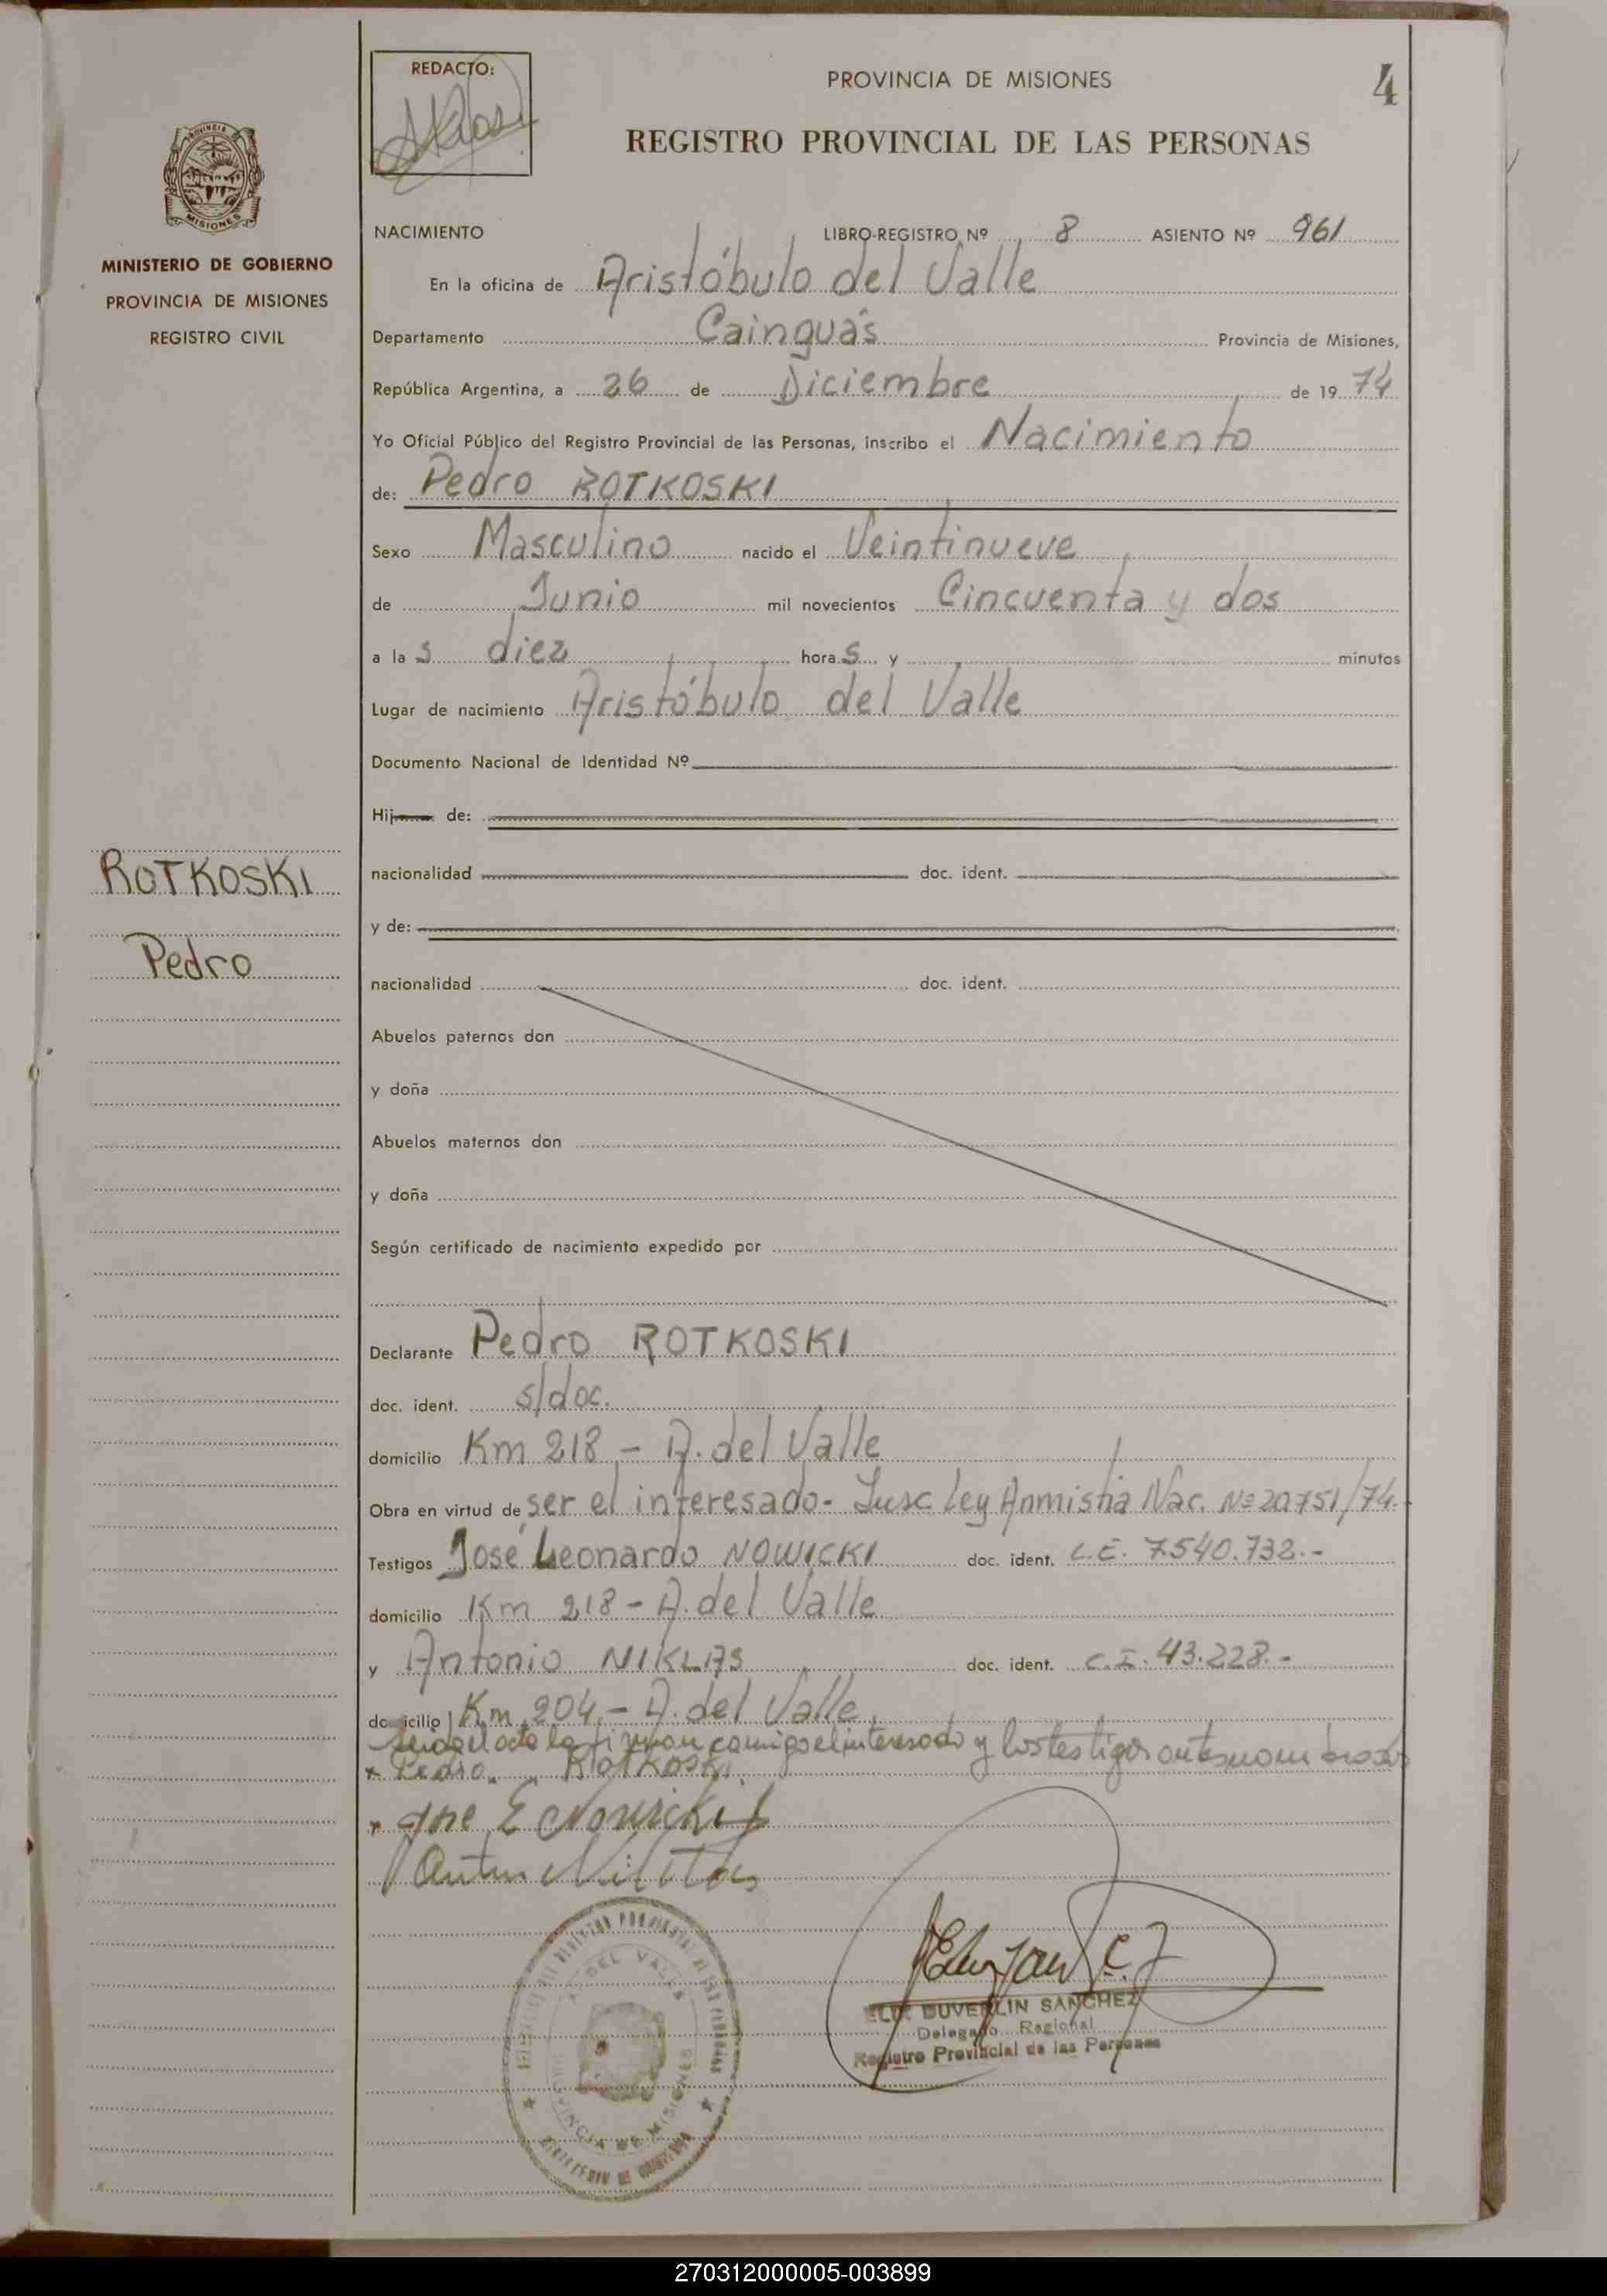 REDACTO:
PROVINCIA DE MISIONES
4
REGISTRO PROVINCIAL DE LAS PERSONAS
MINISTERIO DE GOBIERNO
PROVINCIA DE MISIONES
REGISTRO CIVIL
ROTKOSKI
Pedro
NACIMIENTO LIBRO-REGISTRO Nº 8 ASIENTO Nº 961
En la oficina de Aristóbulo del Valle
Departamento Cainguás Provincia de Misiones,
República Argentina, a 26 de Diciembre de 1974
Yo Oficial Público del Registro Provincial de las Personas, inscribo el Nacimiento
de: Pedro ROTKOSKI
Sexo Masculino nacido el Veintinueve
de Junio mil novecientos Cincuenta y dos
a las diez horas y minutos
Lugar de nacimiento Aristóbulo del Valle
Documento Nacional de Identidad Nº
Hij de:
nacionalidad doc. ident.
y de:
nacionalidad doc. ident.
Abuelos paternos don
y doña
Abuelos maternos don
y doña
Según certificado de nacimiento expedido por
Declarante Pedro ROTKOSKI
doc. ident. s/doc.
domicilio Km 218 - A. del Valle
Obra en virtud de ser el interesado - Insc. Ley Anmistia Nac. Nº 20751/74.-
Testigos José Leonardo NOWICKI doc. ident. L.E. 7.540.732.-
domicilio Km 218 - A. del Valle
y Antonio NIKLAS doc. ident. C.I. 43.228.-
domicilio Km 204 - A. del Valle
Leida el acta la firman conmigo el interesado y los testigos antes nombrados
Pedro Rotkoski
Nowicki
DEL VALLE
PROVINCIA DE MISIONES
MINISTERIO DE GOBIERNO
DUVERLIN SANCHEZ
Delegado Regional
Registro Provincial de las Personas
270312000005-003899